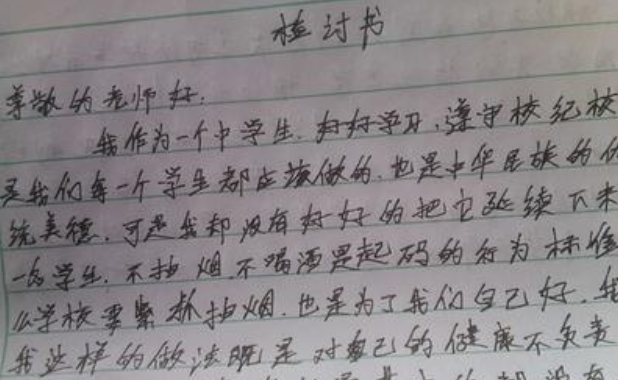 检讨书
尊敬的老师好:
我作为一个中学生.好好学习,遵守校纪校
是我们每一个学生都应该做的.也是中华民族的
统美德.可是我却没有好好的把它延续下来
一名学生.不抽烟.不喝酒是起码的行为标准
么学校要紧抓抽烟.也是为了我们自己好.我
我这样的做法既是对自己的健康不负责
没有